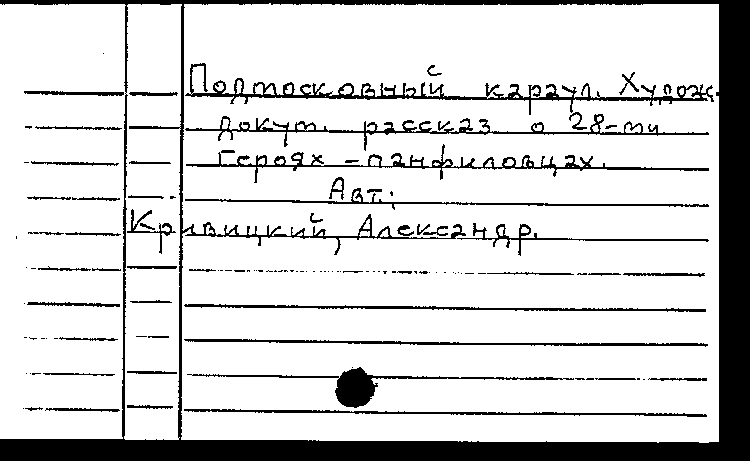 Подмосковный караул. Худож.
докум. рассказ о 28-ми
героях - панфиловцах.
Авт.:
Кривицкий, Александр.